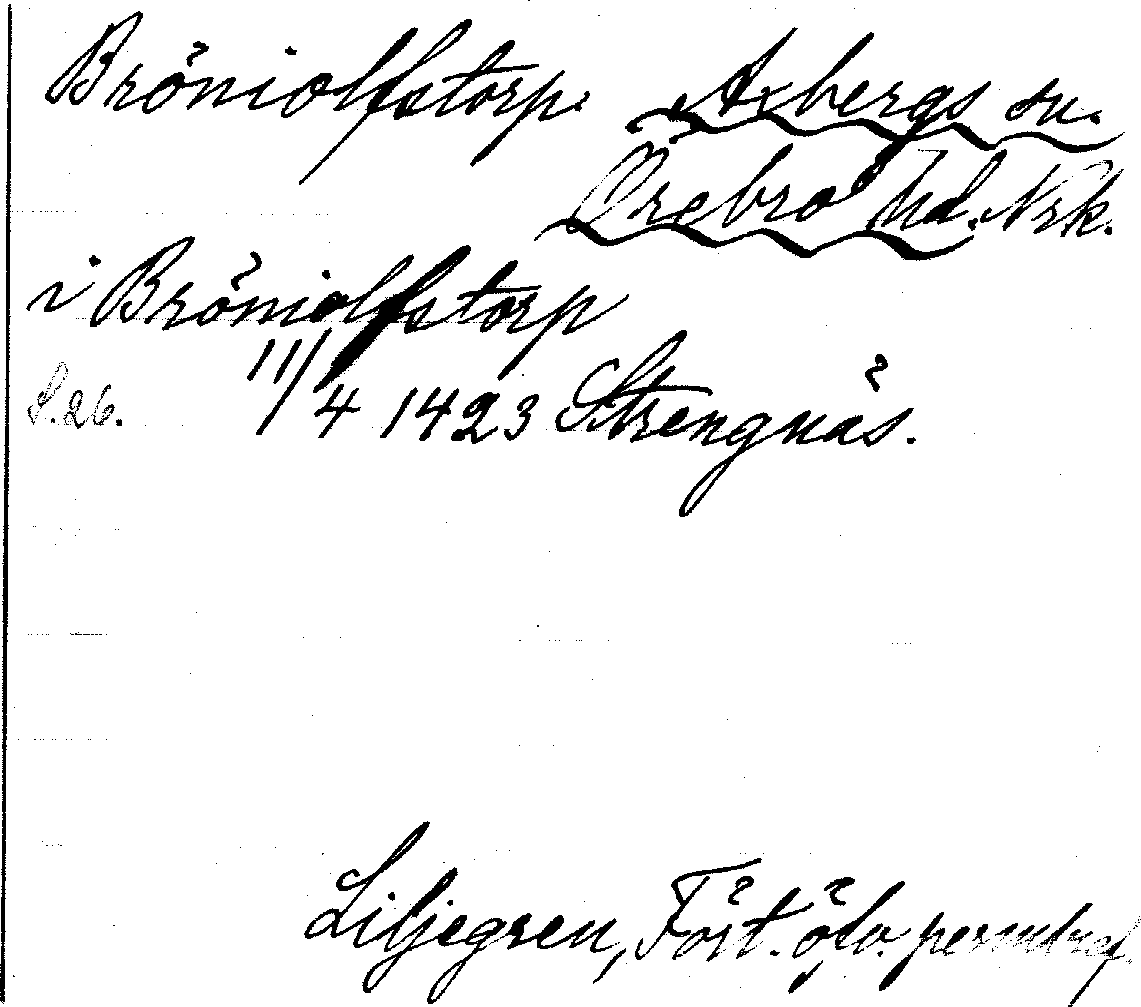 Bröniolfstorp. Axbergs sn.
Örebro hd. Nrk.
i Bröniolfstorp
S. 26. 11/4 1423 Strengnäs.
Liljegren, Fört. öfv. permbref.